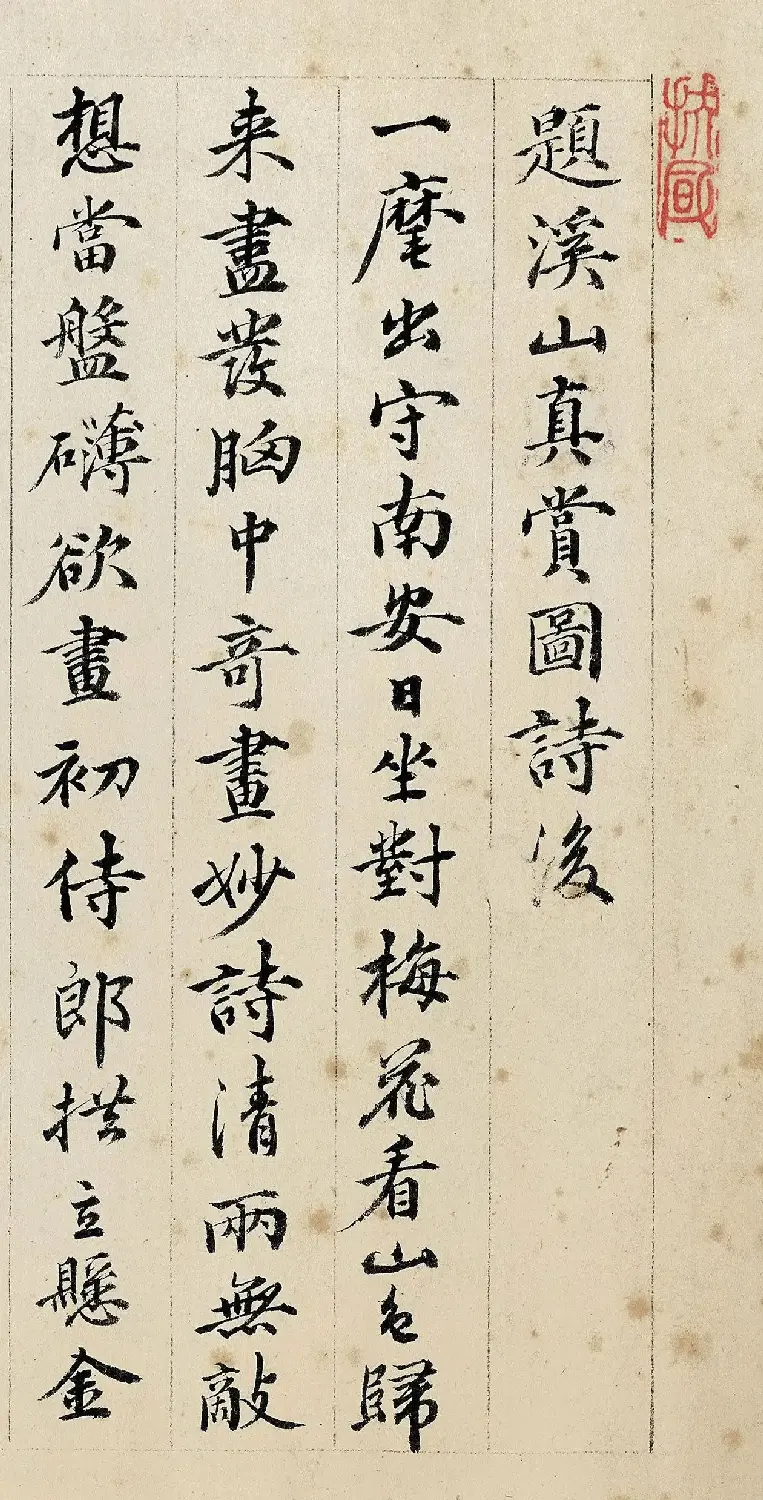 題溪山真賞圖詩後
一麾出守南安日坐對梅花看山色歸
来盡發胸中奇畫妙詩清兩無敵
想當盤礴欲畫初侍郎拱立懸金